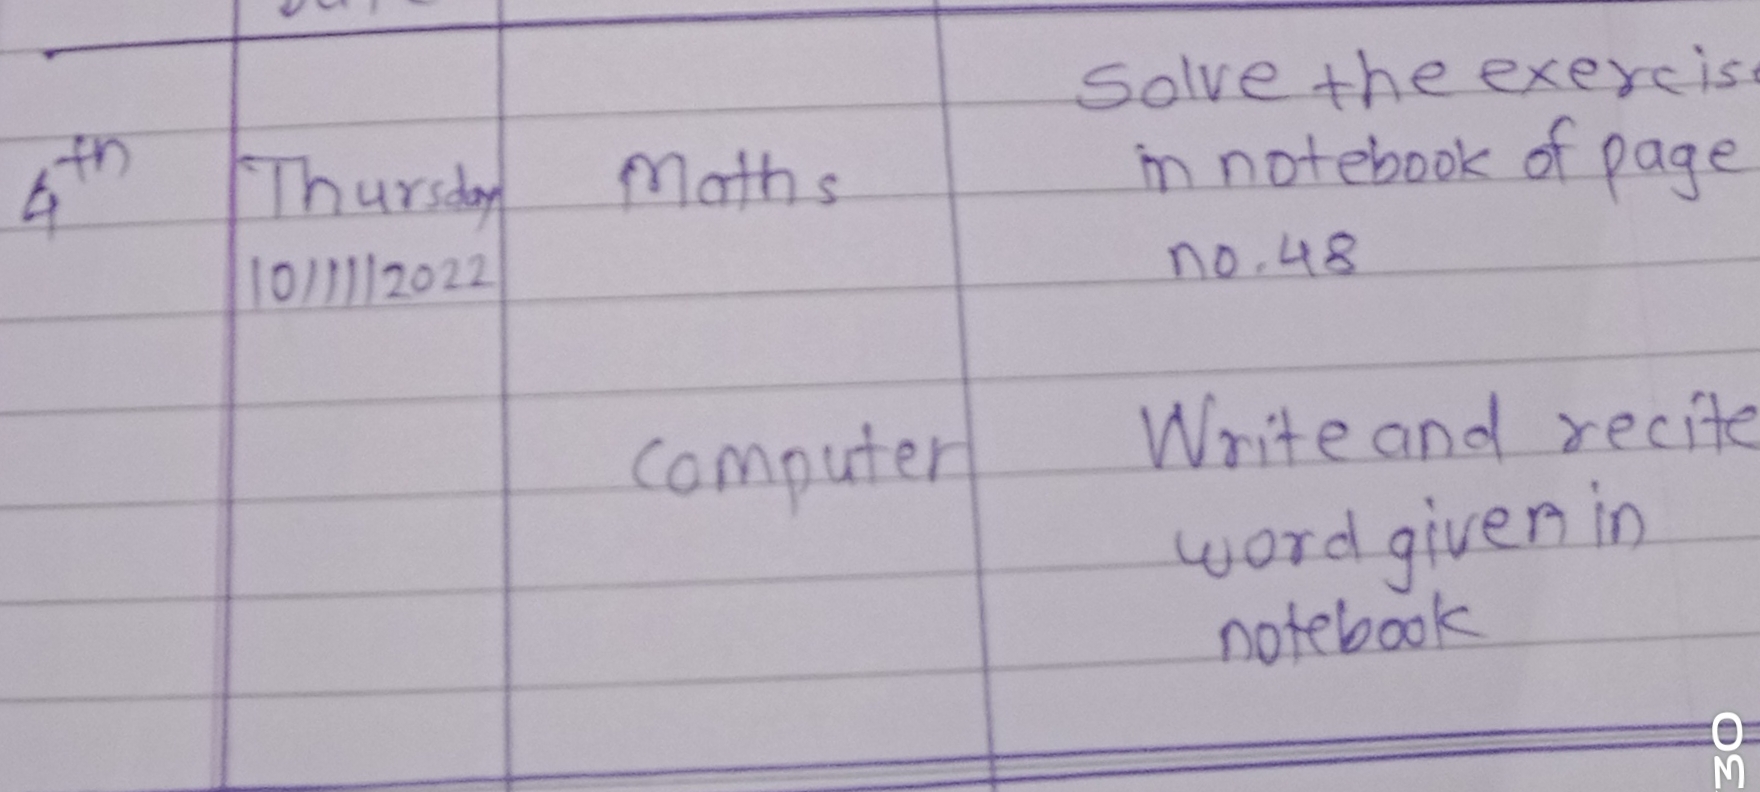 4th Thursday Maths Solve the exercise
in notebook of page
10/11/2022 no.48
Computer Write and recite
word given in
notebook
30